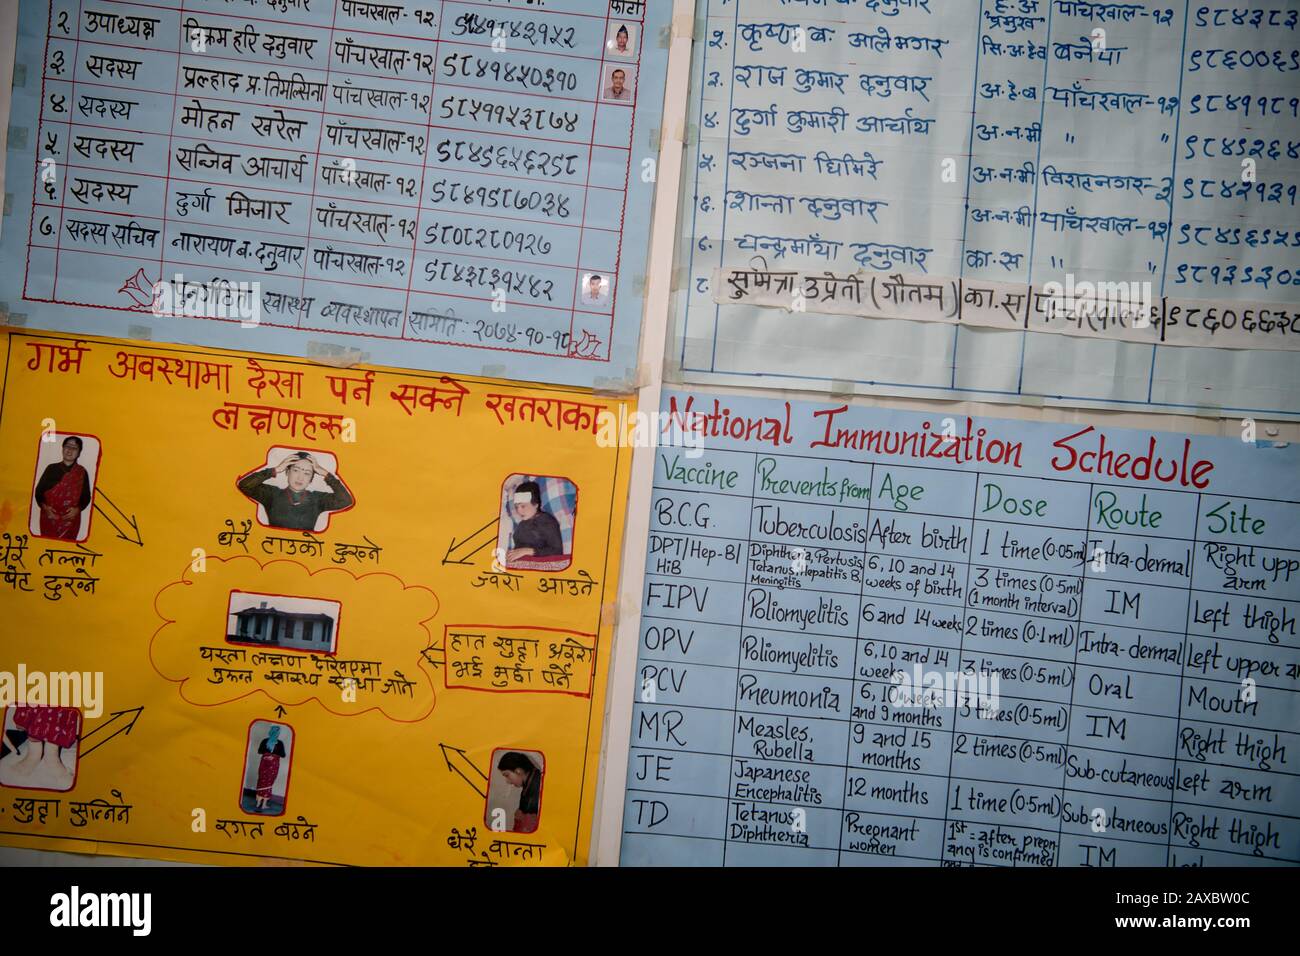 २ उपाध्यक्ष विक्रम हरि दनुवार पाँचखाल-१२
३. सदस्य प्रल्हाद प्र. तिमल्सिना पाँचखाल-१२ ९८४१४५०३१०
४. सदस्य मोहन खरेल पाँचखाल-१२ ९८५११५३८७४
५. सदस्य सन्जिव आचार्य पाँचखाल-१२ ९८४९६५६२९८
६ सदस्य दुर्गा मिजार पाँचखाल-१२ ९८४१९८७०३४
७. सदस्य सचिव नारायण ब. दनुवार पाँचखाल-१२ ९८०८२८०१२७
९८४३८३१५४२
पुनर्गठित स्वास्थ्य व्यवस्थापन समिति: २०७४-१०-१८
प्रमुख पाँचखाल-१२ ९८४३८३
२. कृष्ण ब. आलेमगर सि.अ.हेब बनेपा ९८६००६९
३. राज कुमार दनुवार अ.हे.ब पाँचखाल-१२ ९८४११८१
४. दुर्गा कुमारी आर्चाय अ.न.मी " " ९८४९२६४
५. रञ्जना घिमिरे अ.न.मी विराटनगर-३ ९८४२१३१
६. शान्ता दनुवार अ.न.मी पाँचखाल-१२ ९८४९६९५९
चन्द्रमाँया दनुवार का.स " " ९८१३९३०३
८ सुमित्रा उप्रेती (गौतम) का.स पाँचखाल-६ ९८६०६६३८
गर्भ अवस्थामा देखा पर्न सक्ने खतराका
लक्षणहरू
धेरै तल्लो
पेट दुख्ने
धेरै टाउको दुख्ने
ज्वरो आउने
यस्ता लक्षण देखिएमा
तुरून्त स्वास्थ्य संस्था जाने
हात खुट्टा अररो
भई मुर्छा पर्ने
खुट्टा सुन्निने
रगत बग्ने
धेरै वान्ता
National Immunization Schedule
Vaccine Prevents from Age Dose Route Site
B.C.G. Tuberculosis After birth 1 time (0.05ml) Intra-dermal Right upp
arm
DPT/Hep-B/
HiB Diphtheria, Pertusis,
Tetanus, Hepatitis B,
Meningitis 6, 10 and 14
weeks of birth 3 times (0.5ml)
(1 month interval) IM Left thigh
FIPV Poliomyelitis 6 and 14 weeks 2 times (0.1ml) Intra-dermal Left upper a
OPV Poliomyelitis 6, 10 and 14
weeks 3 times (0.5ml) Oral Mouth
PCV Pneumonia 6, 10 weeks
and 9 months 3 times (0.5ml) IM Right thigh
MR Measles,
Rubella 9 and 15
months 2 times (0.5ml) Sub-cutaneous Left arm
JE Japanese
Encephalitis 12 months 1 time (0.5ml) Sub-cutaneous Right thigh
TD Tetanus
Diphtheria Pregnant
women 1st = after pregn-
ancy is confirmed IM
alamy
Image ID: 2AXBW0C
www.alamy.com